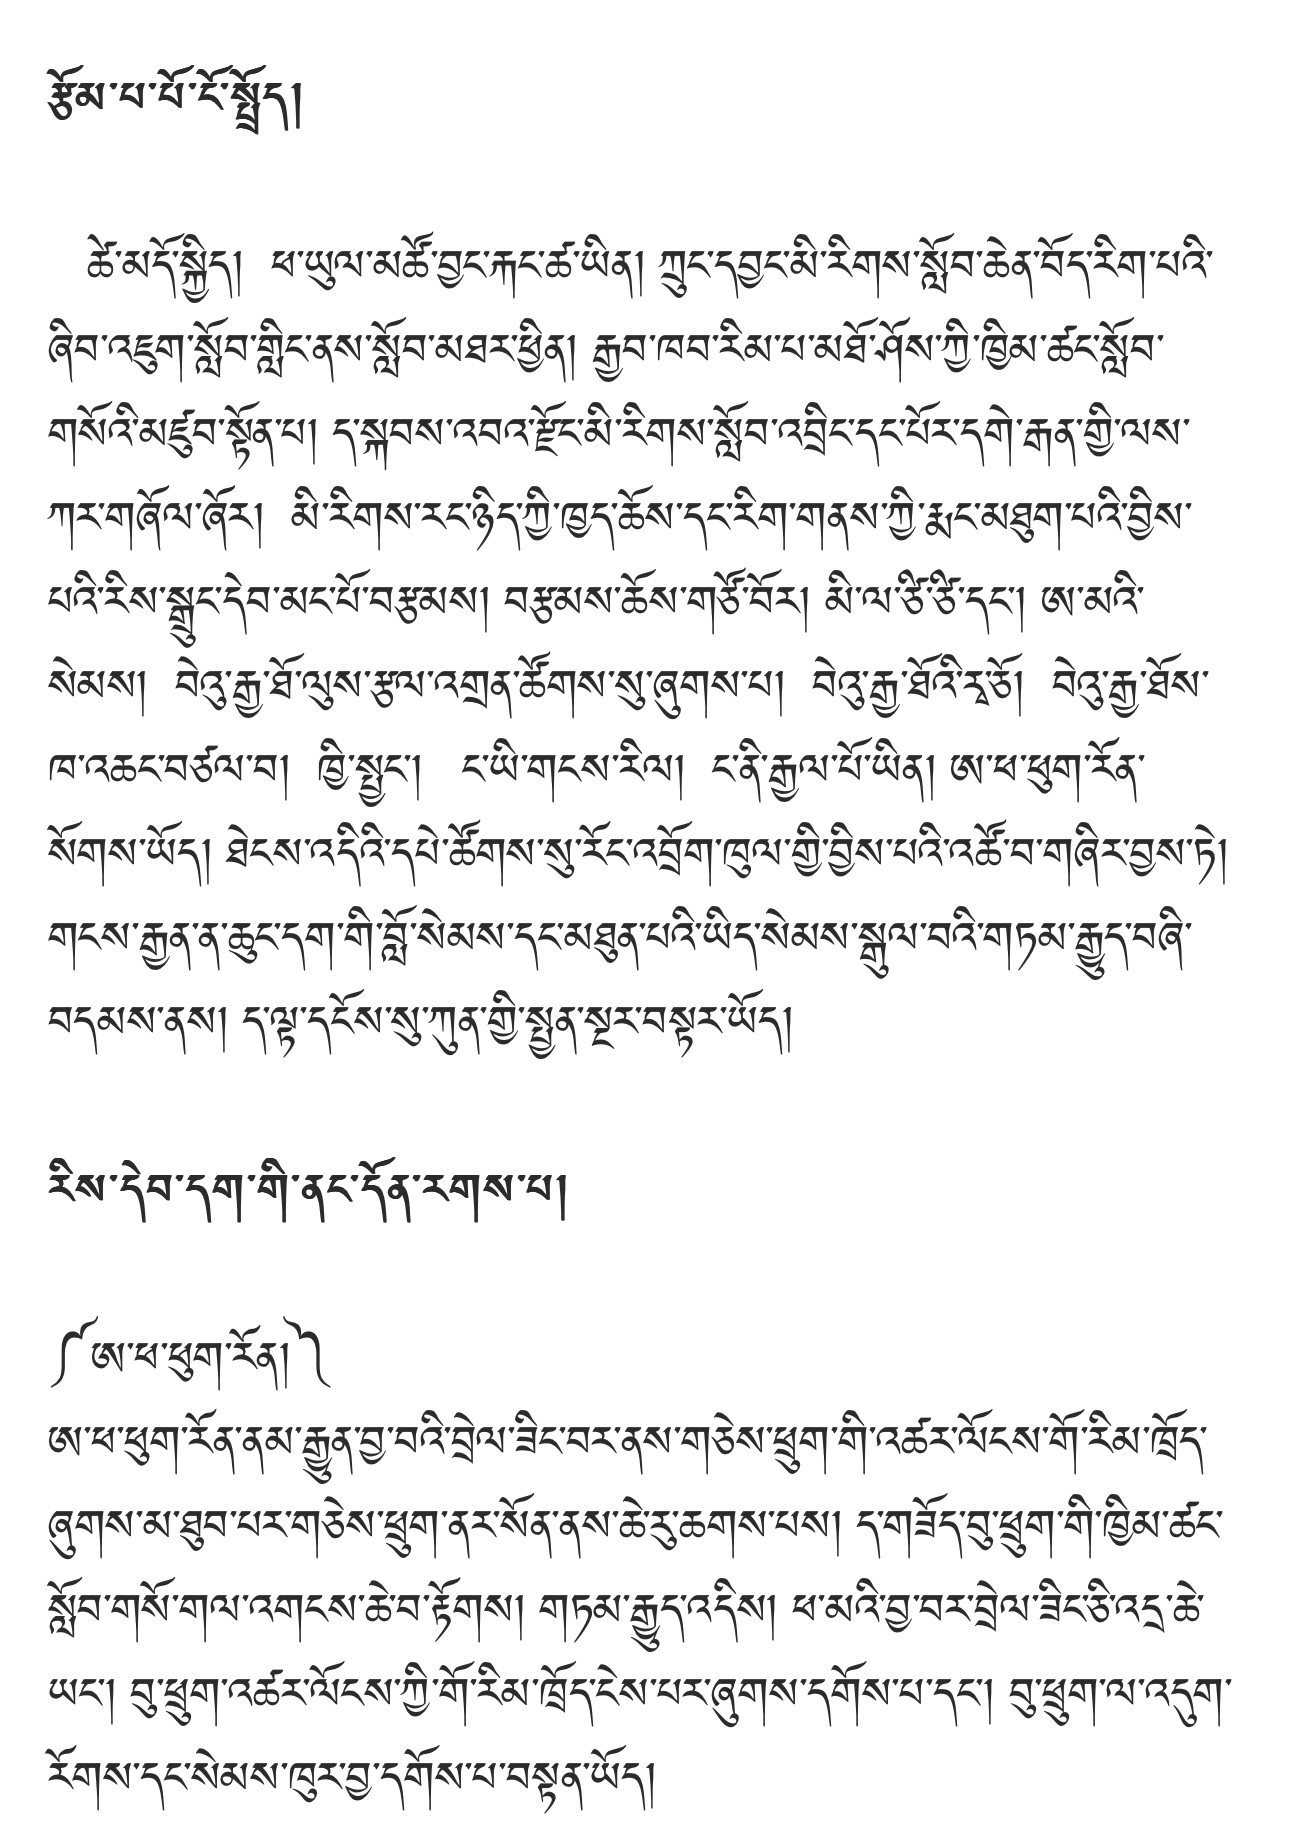 རྩོམ་པ་པོ་ངོ་སྤྲོད།
ཚེ་མདོ་སྐྱིད།  ཕ་ཡུལ་མཚོ་བྱང་རྐང་ཚ་ཡིན། ཀྲུང་དབྱང་མི་རིགས་སློབ་ཆེན་བོད་རིག་པའི་
ཞིབ་འཇུག་སློབ་གླིང་ནས་སློབ་མཐར་ཕྱིན། རྒྱབ་ཁབ་རིམ་པ་མཐོ་ཤོས་ཀྱི་ཁྱིམ་ཚང་སློབ་
གསོའི་མཛུབ་སྟོན་པ། ད་སྐབས་འབའ་རྫོང་མི་རིགས་སློབ་འབྲིང་དང་པོར་དགེ་རྒན་གྱི་ལས་
ཀར་གཞོལ་ཞོར།  མི་རིགས་རང་ཉིད་ཀྱི་ཁྱད་ཆོས་དང་རིག་གནས་ཀྱི་རྨང་མཐུག་པའི་བྱིས་
པའི་རིས་སྒྲུང་དེབ་མང་པོ་བརྩམས། བརྩམས་ཆོས་གཙོ་བོར། མི་ལ་ཙི་ཙི་དང་། ཨ་མའི་
སེམས།  བེའུ་རྒྱ་ཐོ་ལུས་རྩལ་འགྲན་ཚོགས་སུ་ཞུགས་པ།  བེའུ་རྒྱ་ཐོའི་རྭ་ཅོ།  བེའུ་རྒྱ་ཐོས་
ཁ་འཆང་བཙལ་བ།  ཁྱི་སྤྱང་།   ང་ཡི་གངས་རིལ།  ང་ནི་རྒྱལ་པོ་ཡིན། ཨ་ཕ་ཕུག་རོན་
སོགས་ཡོད། ཐེངས་འདིའི་དཔེ་ཚོགས་སུ་རོང་འབྲོག་ཁུལ་གྱི་བྱིས་པའི་འཚོ་བ་གཞིར་བྱས་ཏེ།
གངས་རྒྱན་ན་ཆུང་དག་གི་བློ་སེམས་དང་མཐུན་པའི་ཡིད་སེམས་སྐུལ་བའི་གཏམ་རྒྱུད་བཞི་
བདམས་ནས། ད་ལྟ་དངོས་སུ་ཀུན་གྱི་སྤྱན་སྔར་བསྟར་ཡོད།
རིས་དེབ་དག་གི་ནང་དོན་རགས་པ།
༼ཨ་ཕ་ཕུག་རོན།༽
ཨ་ཕ་ཕུག་རོན་ནམ་རྒྱུན་བྱ་བའི་བྲེལ་ཟིང་བར་ནས་གཅེས་ཕྲུག་གི་འཚར་ལོངས་གོ་རིམ་ཁྲོད་
ཞུགས་མ་ཐུབ་པར་གཅེས་ཕྲུག་ནར་སོན་ནས་ཆེ་རུ་ཆགས་པས། ད་གཟོད་བུ་ཕྲུག་གི་ཁྱིམ་ཚང་
སློབ་གསོ་གལ་འགངས་ཆེ་བ་རྟོགས། གཏམ་རྒྱུད་འདིས། ཕ་མའི་བྱ་བར་བྲེལ་ཟིང་ཅི་འདྲ་ཆེ་
ཡང་། བུ་ཕྲུག་འཚར་ལོངས་ཀྱི་གོ་རིམ་ཁྲོད་ངེས་པར་ཞུགས་དགོས་པ་དང་། བུ་ཕྲུག་ལ་འདུག་
རོགས་དང་སེམས་ཁུར་བྱ་དགོས་པ་བསྟན་ཡོད།